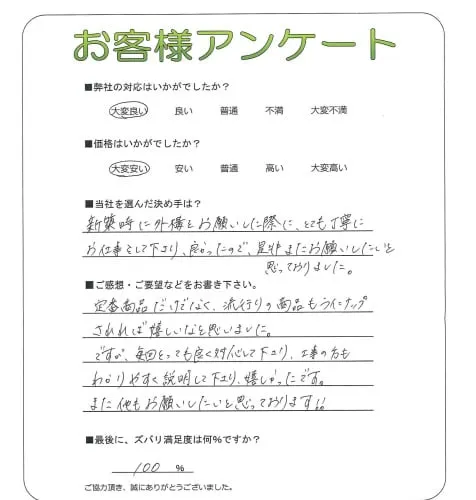 お客様アンケート
■弊社の対応はいかがでしたか?
大変良い 良い 普通 不満 大変不満
■価格はいかがでしたか?
大変安い 安い 普通 高い 大変高い
■当社を選んだ決め手は?
新築時に外構をお願いした際に、とても丁寧に
お仕事をして下さり、良かったので、是非またお願いしたいと
思っておりました。
■ご感想・ご要望などをお書き下さい。
定番商品だけでなく、流行りの商品もラインナップ
されれば嬉しいなと思いました。
ですが、毎回とっても良く対応して下さり、工事の方も
わかりやすく説明して下さり、嬉しかったです。
また他もお願いしたいと思っております!!
■最後に、ズバリ満足度は何%ですか?
100 %
ご協力頂き、誠にありがとうございました。